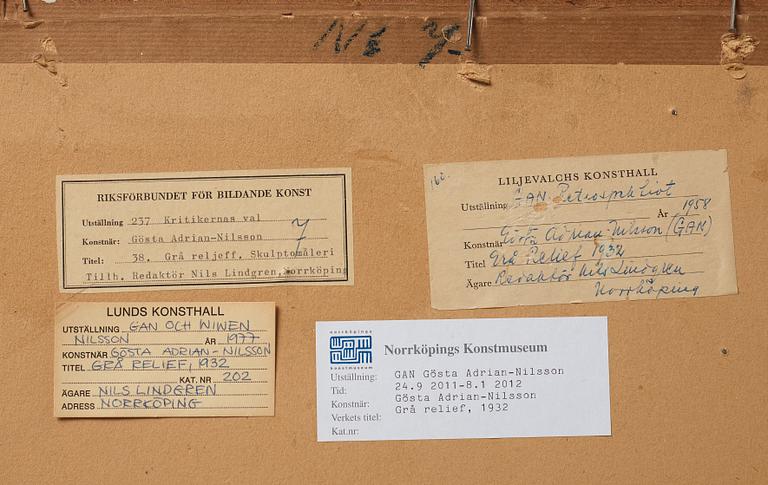 No 7
RIKSFÖRBUNDET FÖR BILDANDE KONST
Utställning 237 Kritikernas val
Konstnär: Gösta Adrian-Nilsson
Titel: 38. Grå reljeff. Skulptomåleri
Tillh. Redaktör Nils Lindgren, Norrköping
7
160.
LILJEVALCHS KONSTHALL
Utställning GAN. Retrospektivt
År 1958
Konstnär Gösta Adrian-Nilsson (GAN)
Titel Grå Relief 1932
Ägare Redaktör Nils Lindgren
Norrköping
LUNDS KONSTHALL
UTSTÄLLNING GAN OCH WIWEN
NILSSON ÅR 1977
KONSTNÄR GÖSTA ADRIAN-NILSSON
TITEL GRÅ RELIEF, 1932
KAT. NR 202
ÄGARE NILS LINDGREN
ADRESS NORRKÖPING
norrköpings
konstmuseum
Norrköpings Konstmuseum
Utställning: GAN Gösta Adrian-Nilsson
Tid: 24.9 2011-8.1 2012
Konstnär: Gösta Adrian-Nilsson
Verkets titel: Grå relief, 1932
Kat.nr: